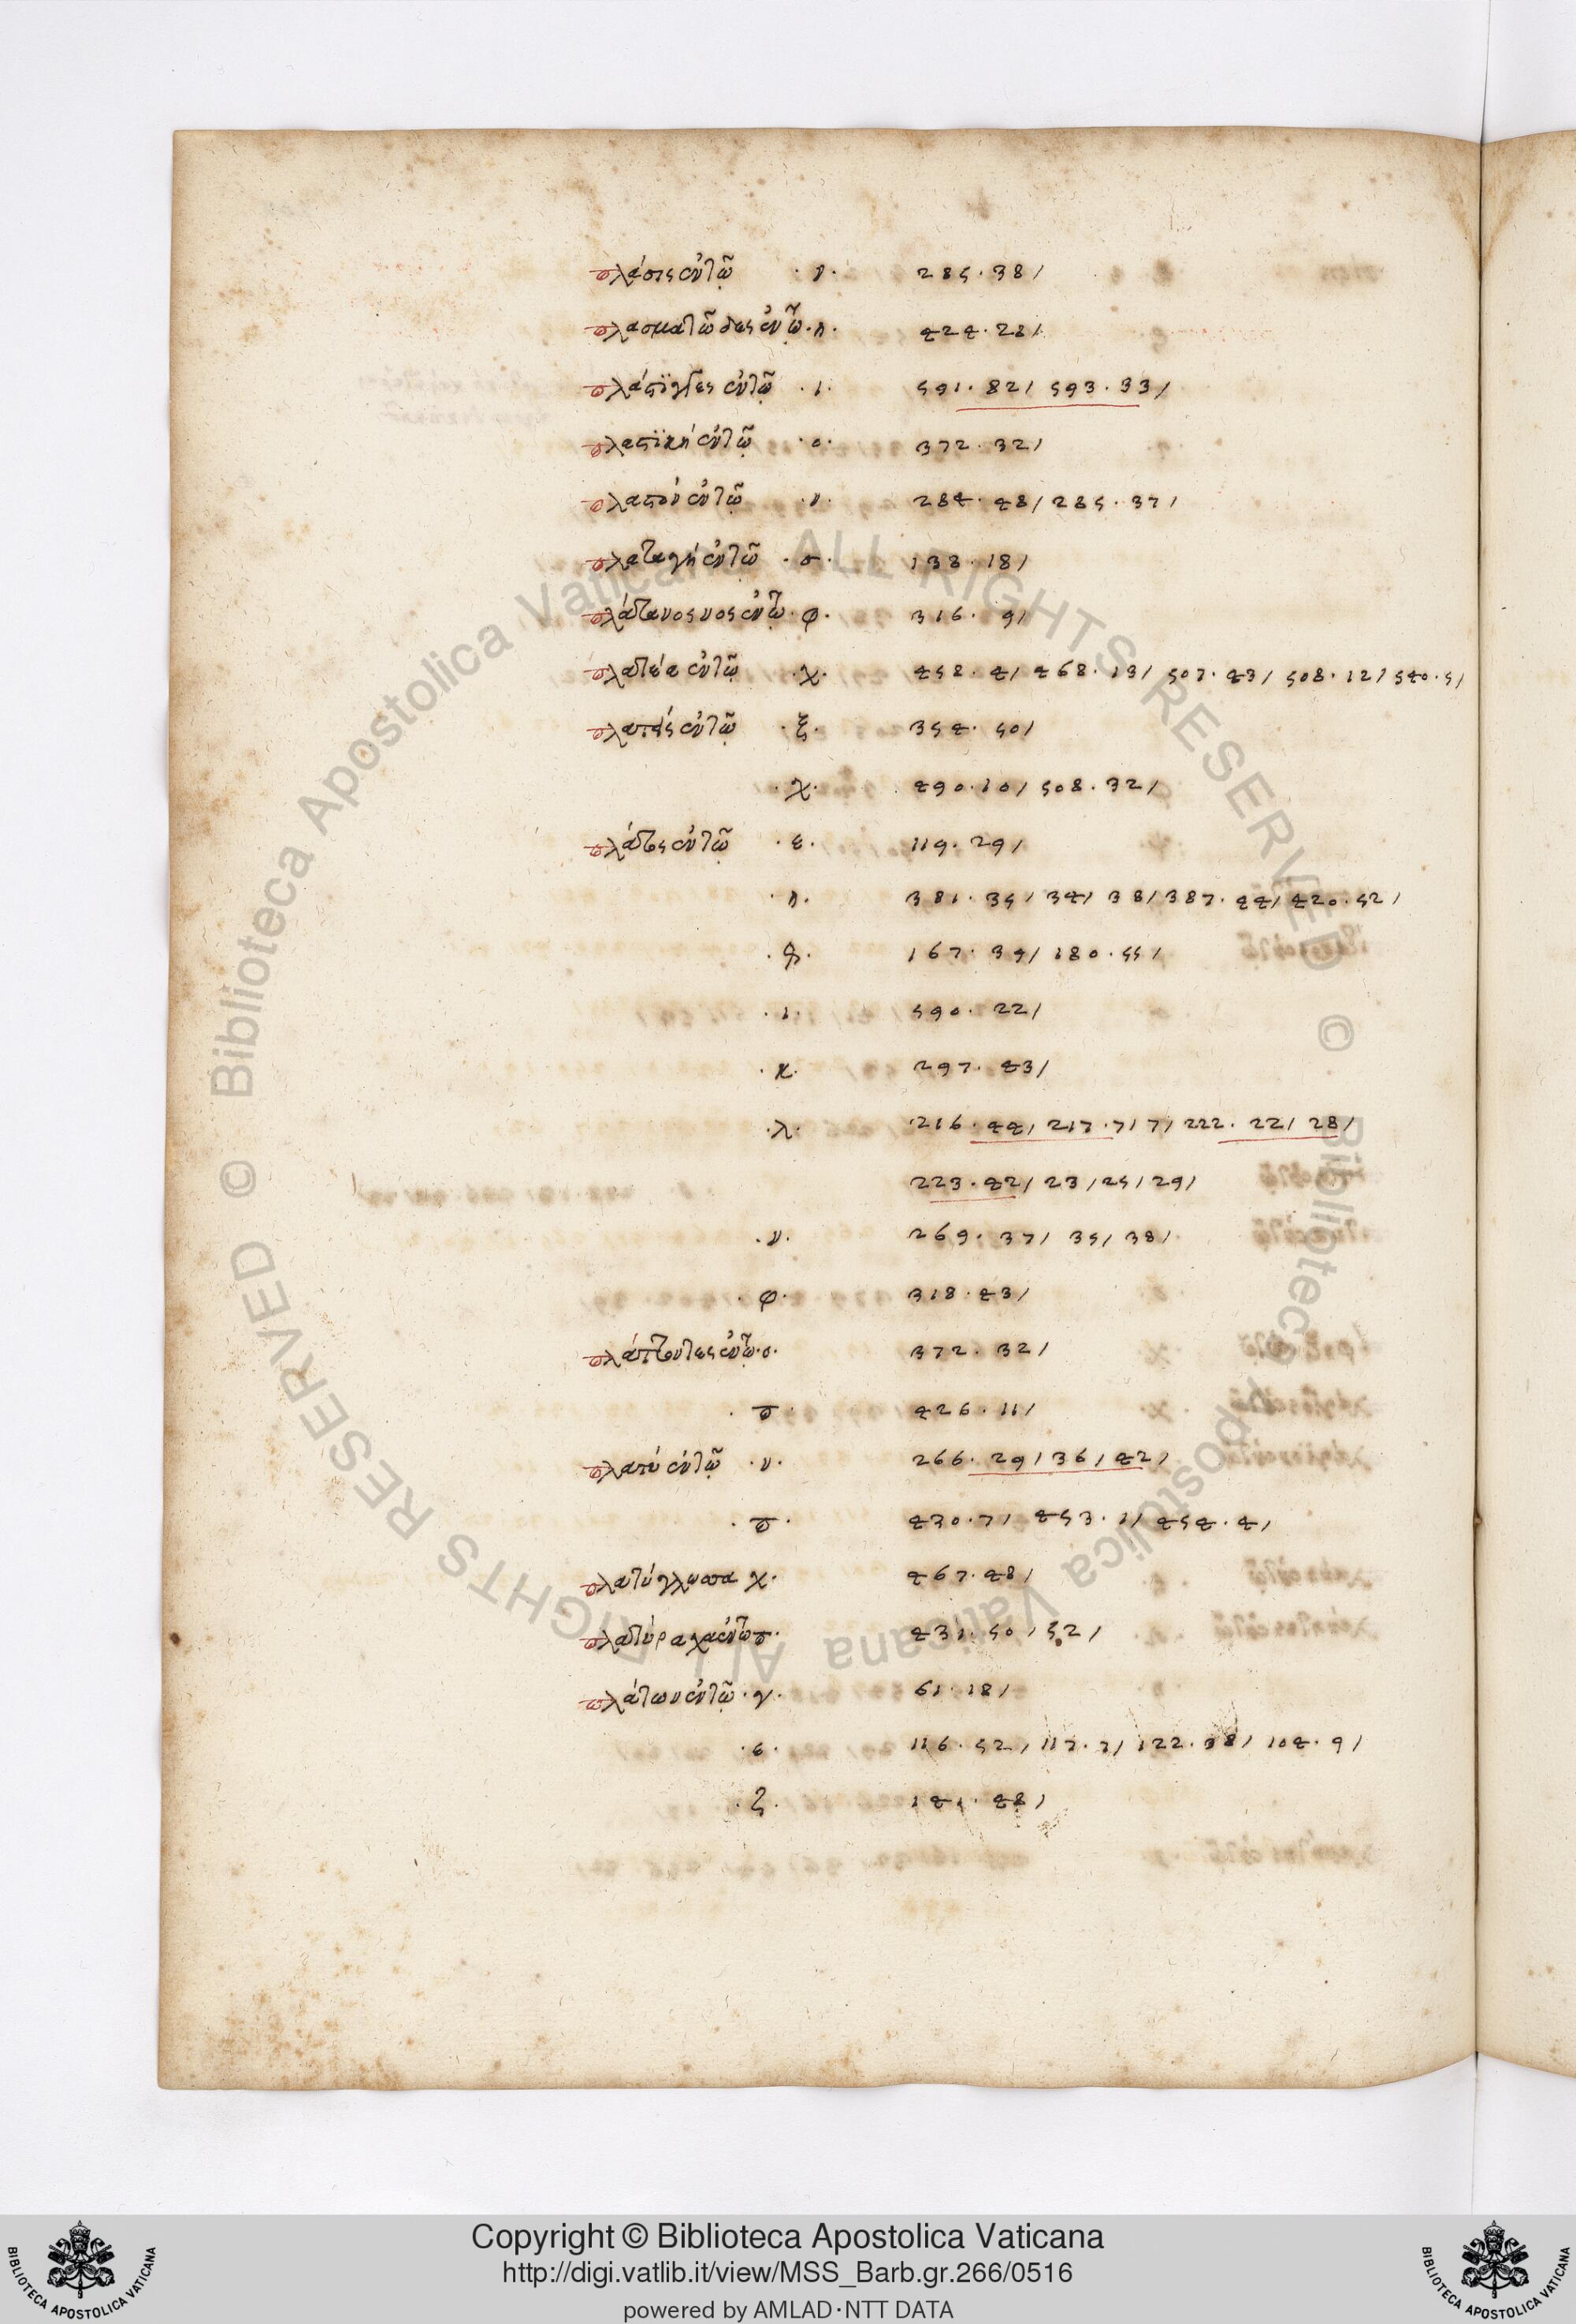 πλάσις ἐν τῷ ·ν· 285·38/
πλασματώδες ἐν τῷ ·η· 424·28/
πλάστιγγες ἐν τῷ ·ι· 591·82/ 593·33/
πλαστικὴ ἐν τῷ ·ο· 372·32/
πλαστὸν ἐν τῷ ·ν· 284·48/ 285·37/
πλαταγὴ ἐν τῷ ·σ· 138·18/
πλάτανος νος ἐν τῷ ·φ· 316·9/
πλατεία ἐν τῷ ·χ· 458·4/ 468·19/ 507·43/ 508·12/ 540·5/
ἐν τῷ ·ξ· 354·50/
·χ· 490·10/ 508·32/
πλάτος ἐν τῷ ·ε· 119·29/
·η· 381·35/ 34/ 38/ 387·44/ 420·52/
167·39/ 180·55/
·ι· 590·22/
·κ· 297·43/
·λ· 216·44/ 217·7/ 7/ 222·22/ 28/
223·42/ 23/ 25/ 29/
·ν· 269·37/ 35/ 38/
·φ· 318·43/
πλάττοντες ἐν τῷ ·ο· 372·32/
·π· 426·11/
πλατὺ ἐν τῷ ·ν· 266·29/ 36/ 42/
·π· 430·7/ 453·1/ 454·4/
πλατύγλωσσα χ· 467·48/
ἐν τῷ π· 431·50/ 52/
πλάτων ἐν τῷ ·γ· 61·18/
·ε· 116·52/ 117·7/ 122·38/ 104·9/
·ζ· 141·48/
Copyright © Biblioteca Apostolica Vaticana
http://digi.vatlib.it/view/MSS_Barb.gr.266/0516
powered by AMLAD·NTT DATA
BIBLIOTECA APOSTOLICA VATICANA
BIBLIOTECA APOSTOLICA VATICANA
© Biblioteca Apostolica Vaticana ALL RIGHTS RESERVED © Biblioteca Apostolica Vaticana ALL RIGHTS RESERVED